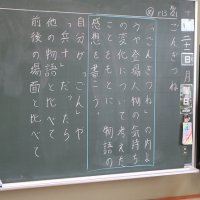 ごんぎつね
「ごんぎつね」の内よ
うや登場人物の気持ち
の変化について考えた
ことをもとに、物語の
感想を書こう。
自分が「ごん」や
「兵十」だったら
他の物語と比べて
前後の場面と比べて